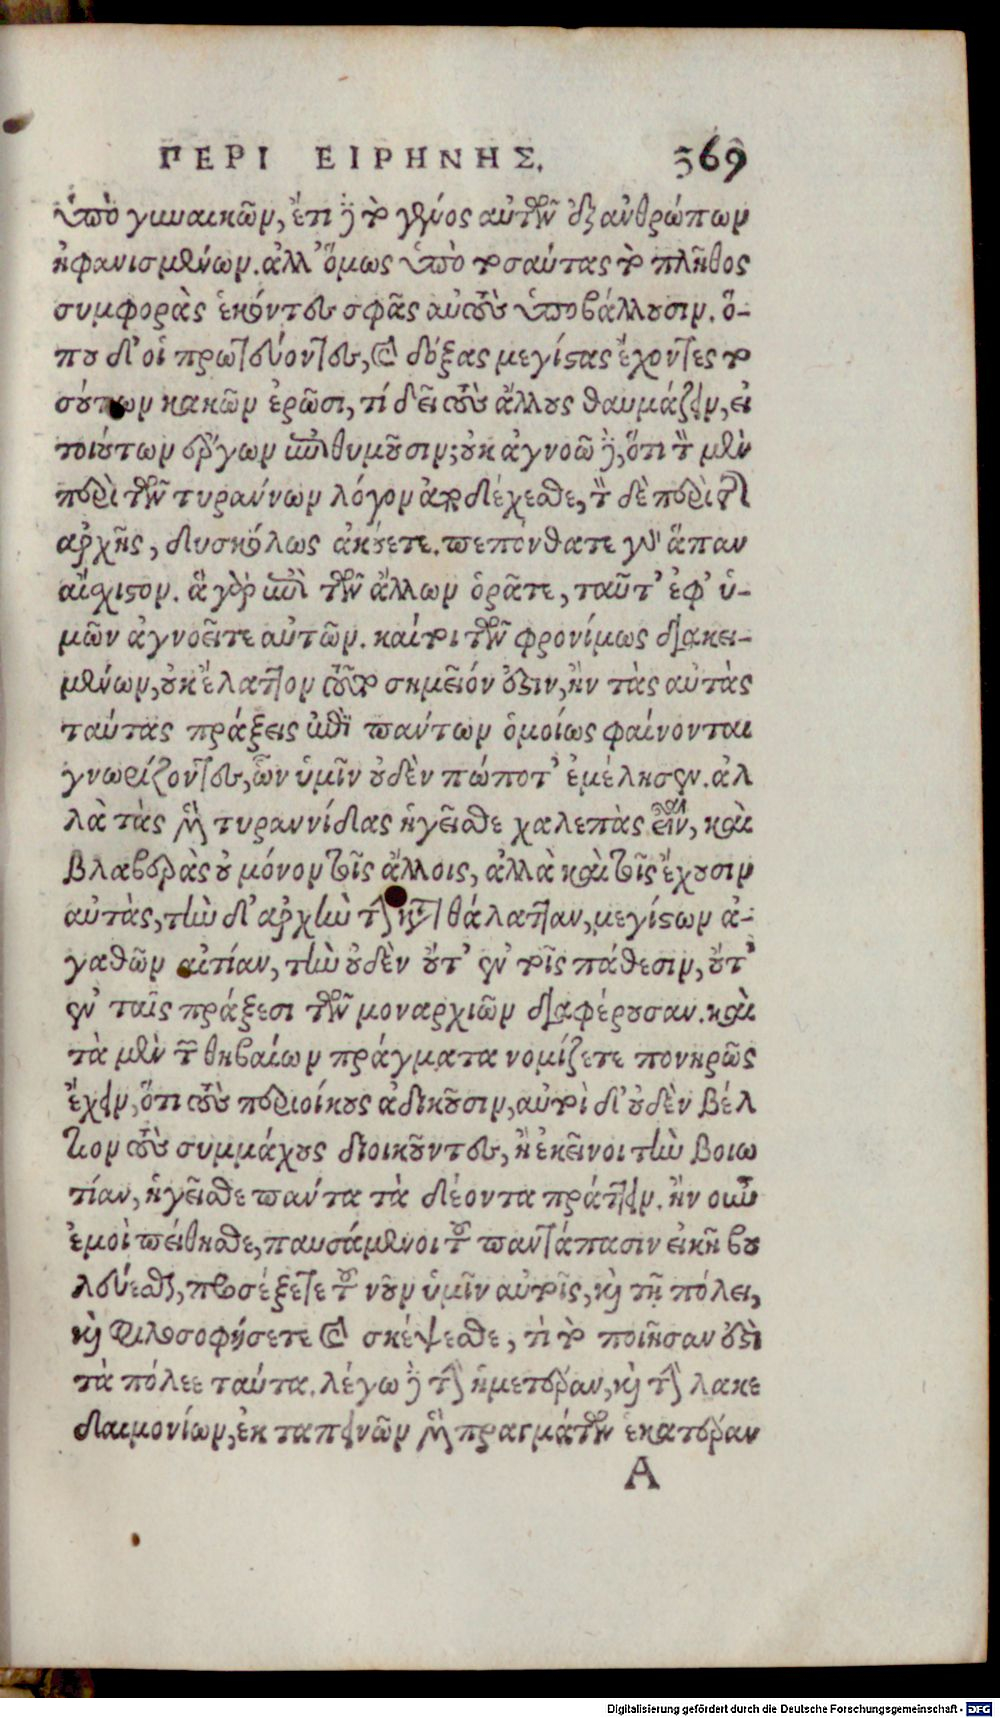 ΠΕΡΙ ΕΙΡΗΝΗΣ. 369
ὑπὸ γυναικῶν, ἔτι δὲ τὸ γένος αὐτῶν ἐξ ἀνθρώπων
ἠφανισμένων. ἀλλ' ὅμως ὑπὸ τοσαύτας τὸ πλῆθος
συμφορὰς ἑκόντες σφᾶς αὐτοὺς ὑποβάλλουσιν. ὅ-
που δ' οἱ πρωτεύοντες, καὶ δόξας μεγίστας ἔχοντες το
σούτων κακῶν ἐρῶσι, τί δεῖ τοὺς ἄλλους θαυμάζειν, εἰ
τοιούτων ἔργων ἐπιθυμοῦσιν; οὐκ ἀγνοῶ δὲ, ὅτι τὸν μὲν
περὶ τῶν τυράννων λόγον ἀποδέχεσθε, τὸν δὲ περὶ τῆς
ἀρχῆς, δυσκόλως ἀκούετε. πεπόνθατε γὰρ ἅπαν
αἴσχιστον. ἃ γὰρ ἐπὶ τῶν ἄλλων ὁρᾶτε, ταῦτ' ἐφ' ὑ-
μῶν ἀγνοεῖτε αὐτῶν. καίτοι τῶν φρονίμως διακει-
μένων, οὐκ ἔλαττον τοῦτο σημεῖόν ἐστιν, ἢν τὰς αὐτὰς
ταύτας πράξεις ἐπὶ πάντων ὁμοίως φαίνονται
γνωρίζοντες, ὧν ὑμῖν οὐδὲν πώποτ' ἐμέλησεν. ἀλ
λὰ τὰς μὲν τυραννίδας ἡγεῖσθε χαλεπὰς εἶναι, καὶ
βλαβερὰς οὐ μόνον τοῖς ἄλλοις, ἀλλὰ καὶ τοῖς ἔχουσιν
αὐτὰς, τὴν δ' ἀρχὴν τὴν κατὰ θάλατταν, μεγίστων ἀ-
γαθῶν αἰτίαν, τὴν οὐδὲν οὔτ' ἐν τοῖς πάθεσιν, οὔτ'
ἐν ταῖς πράξεσι τῶν μοναρχιῶν διαφέρουσαν. καὶ
τὰ μὲν τῶν θηβαίων πράγματα νομίζετε πονηρῶς
ἔχειν, ὅτι τοὺς περιοίκους ἀδικοῦσιν, αὐτοὶ δ' οὐδὲν βέλ
τιον τοὺς συμμάχους διοικοῦντες, ἢ ἐκεῖνοι τὴν βοιω
τίαν, ἡγεῖσθε πάντα τὰ δέοντα πράττειν. ἢν οὖν
ἐμοὶ πείθησθε, παυσάμενοι τοῦ παντάπασιν εἰκῆ βου
λεύεσθαι, προσέξετε τὸν νοῦν ὑμῖν αὐτοῖς, καὶ τῇ πόλει,
καὶ φιλοσοφήσετε καὶ σκέψεσθε, τί τὸ ποιῆσαν ἐστὶ
τὰ πόλεε ταύτα. λέγω δὲ τὴν ἡμετέραν, καὶ τὴν λακε
δαιμονίων, ἐκ ταπεινῶν μὲν πραγμάτων ἑκατέραν
A
Digitalisierung gefördert durch die Deutsche Forschungsgemeinschaft - DFG